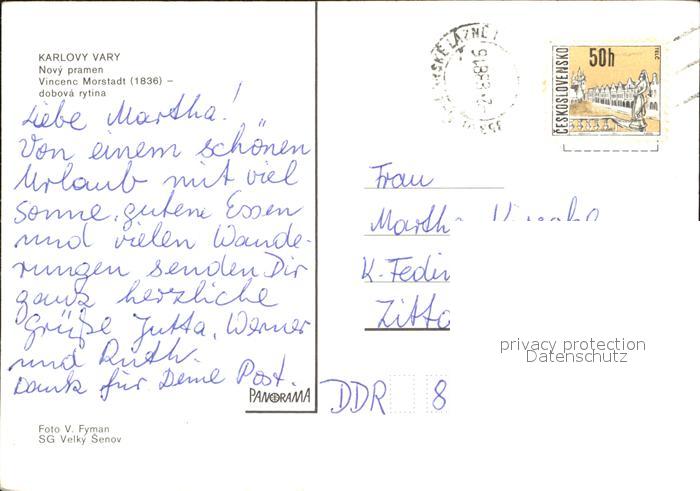 KARLOVY VARY
Nový pramen
Vincenc Morstadt (1836) –
dobová rytina
Liebe Martha!
Von einem schönen
Urlaub mit viel
Sonne, gutem Essen
und vielen Wande-
rungen senden Dir
ganz herzliche
Grüße Jutta, Werner
und Ruth.
Dank für Deine Post.
PANORAMA
Foto V. Fyman
SG Velký Šenov
ČESKOSLOVENSKO
50h
TELČ
Frau
Martha
K.-Fedin
Zitta
DDR 8
privacy protection
Datenschutz